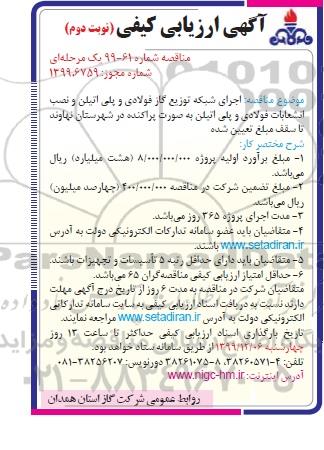 آگهی ارزیابی کیفی (نوبت دوم)
مناقصه شماره ۶۱-۹۹ یک مرحله‌ای
شماره مجوز: ۱۳۹۹.۶۷۵۹
موضوع مناقصه: اجرای شبکه توزیع گاز فولادی و پلی اتیلن و نصب
انشعابات فولادی و پلی اتیلن به صورت پراکنده در شهرستان نهاوند
تا سقف مبلغ تعیین شده
شرح مختصر کار:
۱- مبلغ برآورد اولیه پروژه ۸/۰۰۰/۰۰۰/۰۰۰ (هشت میلیارد) ریال
می‌باشد.
۲- مبلغ تضمین شرکت در مناقصه ۴۰۰/۰۰۰/۰۰۰ (چهارصد میلیون)
ریال می‌باشد.
۳- مدت اجرای پروژه ۳۶۵ روز می‌باشد.
۴- متقاضیان باید عضو سامانه تدارکات الکترونیکی دولت به آدرس
www.setadiran.ir باشند.
۵- متقاضیان باید دارای حداقل رتبه ۵ تاسیسات و تجهیزات باشند.
۶- حداقل امتیاز ارزیابی کیفی مناقصه‌گران ۶۵ می‌باشد.
متقاضیان شرکت در مناقصه به مدت ۶ روز از تاریخ درج آگهی مهلت
دارند نسبت به دریافت اسناد ارزیابی کیفی به سایت سامانه تدارکاتی
الکترونیکی دولت به آدرس www.setadiran.ir مراجعه نمایند.
تاریخ بارگذاری اسناد ارزیابی کیفی حداکثر تا ساعت ۱۳ روز
چهارشنبه ۱۳۹۹/۱۲/۰۶ از طریق سامانه ستاد خواهد بود.
تلفن: ۴-۳۸۲۶۰۵۷۱، ۸-۳۸۲۶۱۰۷۵ دورنویس: ۳۸۲۵۶۲۰۷-۰۸۱
آدرس اینترنت: www.nigc-hm.ir
روابط عمومی شرکت گاز استان همدان